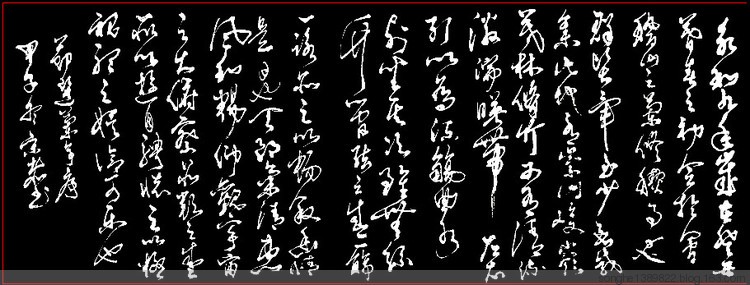 永和九年歲在癸丑
暮春之初會於會
稽山之蘭亭修禊事也
群賢畢至少長咸
集此地有崇山峻嶺
茂林修竹又有清流
激湍映帶左右
引以為流觴曲水
列坐其次雖無絲
竹管弦之盛一觴
一詠亦足以暢敘幽情
是日也天朗氣清惠
風和暢仰觀宇宙
之大俯察品類之盛
所以遊目騁懷足以極
視聽之娛信可樂也
節選蘭亭序
甲子冬